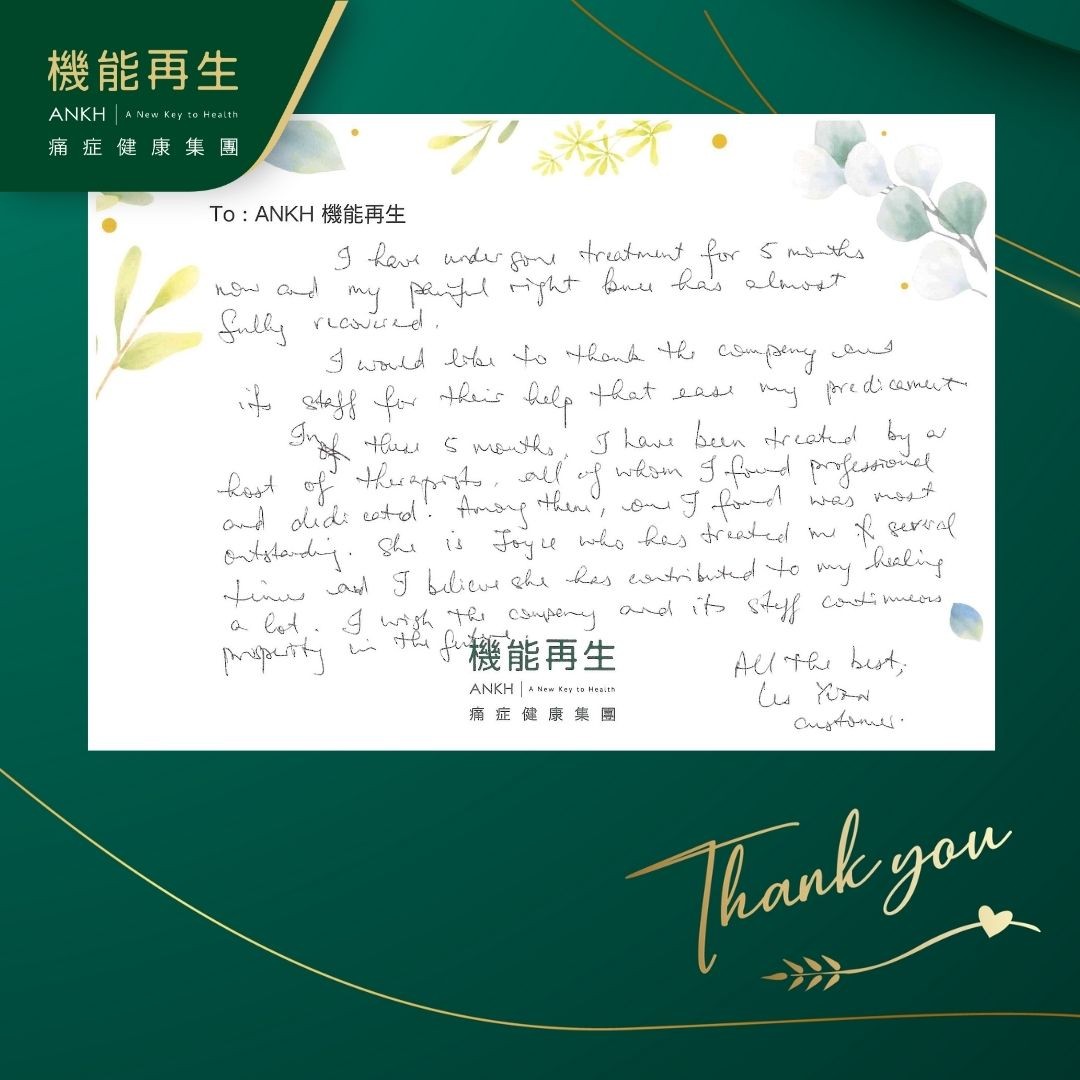 機能再生
ANKH | A New Key to Health
痛症健康集團
To : ANKH 機能再生
I have undergone treatment for 5 months
now and my painful right knee has almost
fully recovered.
I would like to thank the company and
its staff for their help that ease my predicament
In these 5 months, I have been treated by a
host of therapists, all of whom I found professional
and dedicated. Among them, one I found was most
outstanding. She is Joyce who has treated me several
times and I believe she has contributed to my healing
a lot. I wish the company and its staff continuous
prosperity in the future.
機能再生
ANKH | A New Key to Health
痛症健康集團
All the best,
Yuen
customer.
Thank you